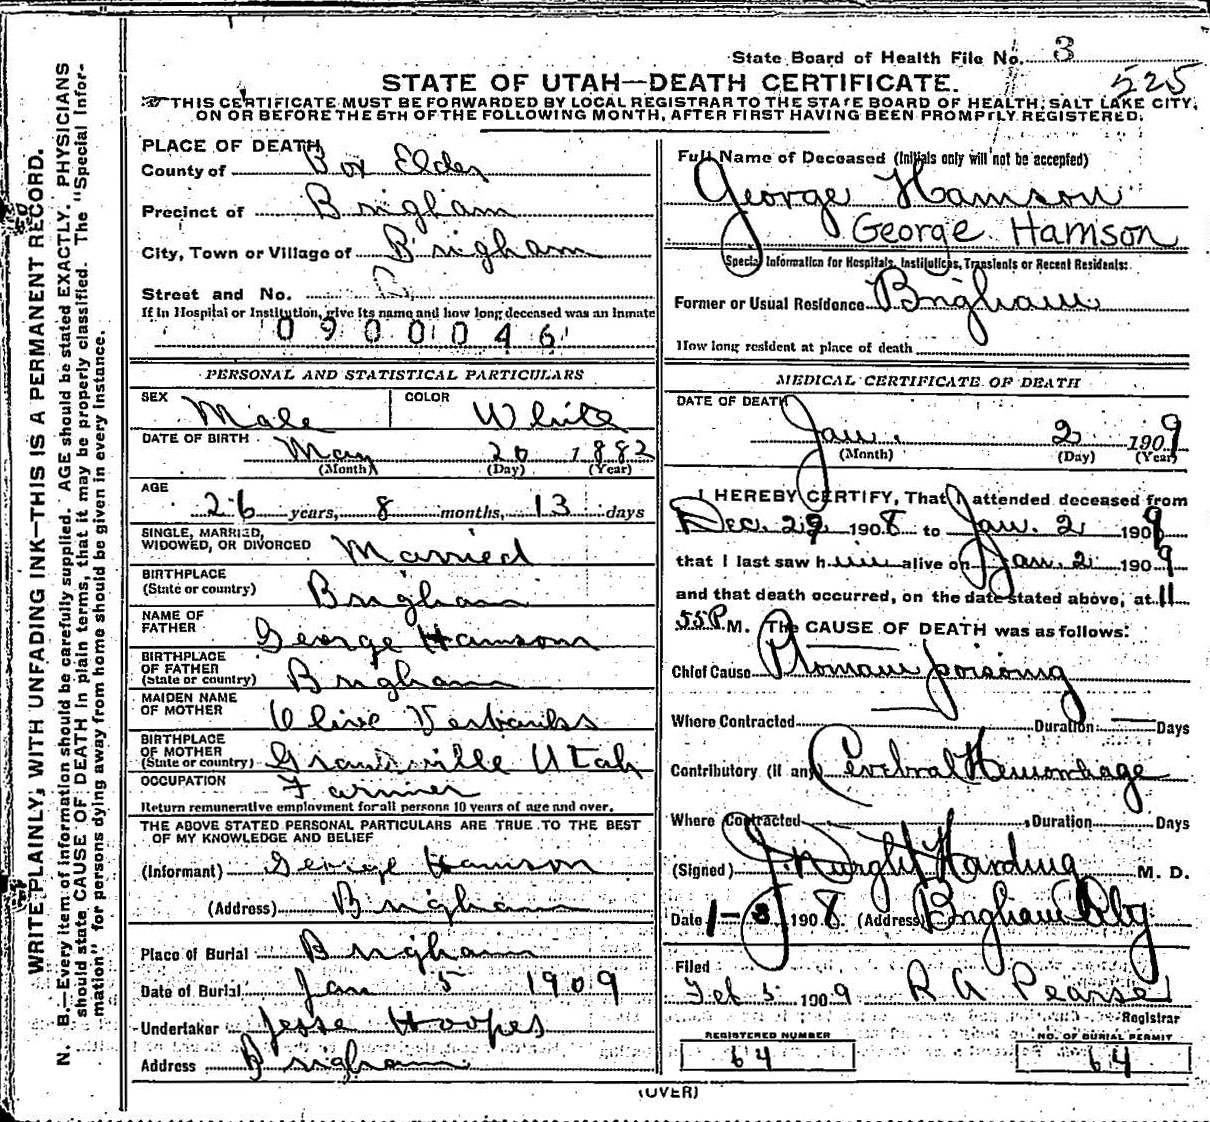 State Board of Health File No. 3
525
STATE OF UTAH—DEATH CERTIFICATE.
THIS CERTIFICATE MUST BE FORWARDED BY LOCAL REGISTRAR TO THE STATE BOARD OF HEALTH, SALT LAKE CITY,
ON OR BEFORE THE 5TH OF THE FOLLOWING MONTH, AFTER FIRST HAVING BEEN PROMPTLY REGISTERED.
WRITE PLAINLY, WITH UNFADING INK—THIS IS A PERMANENT RECORD.
N. B.—Every item of information should be carefully supplied. AGE should be stated EXACTLY. PHYSICIANS
should state CAUSE OF DEATH in plain terms, that it may be properly classified. The "Special Infor-
mation" for persons dying away from home should be given in every instance.
PLACE OF DEATH
County of Box Elder
Precinct of Brigham
City, Town or Village of Brigham
Street and No.
If in Hospital or Institution, give its name and how long deceased was an inmate
0900046
PERSONAL AND STATISTICAL PARTICULARS
SEX Male COLOR White
DATE OF BIRTH May 20 1882
(Month) (Day) (Year)
AGE
26 years, 8 months, 13 days
SINGLE, MARRIED,
WIDOWED, OR DIVORCED Married
BIRTHPLACE
(State or country) Brigham
NAME OF
FATHER George Hamson
BIRTHPLACE
OF FATHER
(State or country) Brigham
MAIDEN NAME
OF MOTHER Olive
BIRTHPLACE
OF MOTHER
(State or country) Grantsville Utah
OCCUPATION Farmer
Return remunerative employment for all persons 10 years of age and over.
THE ABOVE STATED PERSONAL PARTICULARS ARE TRUE TO THE BEST
OF MY KNOWLEDGE AND BELIEF
(Informant) George Hamson
(Address) Brigham
Place of Burial Brigham
Date of Burial Jan 5 1909
Undertaker Jesse Hoopes
Address Brigham
Full Name of Deceased (Initials only will not be accepted)
George Hamson
George Hamson
Special Information for Hospitals, Institutions, Transients or Recent Residents:
Former or Usual Residence Brigham
How long resident at place of death
MEDICAL CERTIFICATE OF DEATH
DATE OF DEATH
Jan. 2 1909
(Month) (Day) (Year)
I HEREBY CERTIFY, That I attended deceased from
Dec. 29 1908 to Jan. 2 1909
that I last saw him alive on Jan. 2 1909
and that death occurred, on the date stated above, at 11
55 P M. The CAUSE OF DEATH was as follows:
Chief Cause Ptomain poisoning
Where Contracted Duration — Days
Contributory (if any) Cerebral Hemorrhage
Where Contracted Duration Days
(Signed) Harding M. D.
Date 1-3 1908 (Address) Brigham City
Filed
Feb 5 1909 R A Pearse
Registrar
REGISTERED NUMBER
64
NO. OF BURIAL PERMIT
64
(OVER)